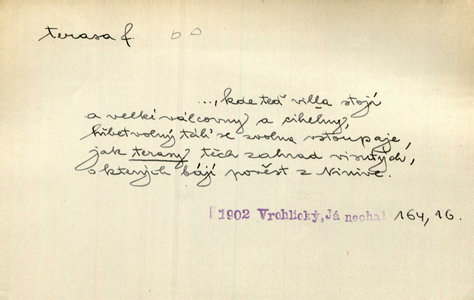 terasa f.
..., kde teď villa stojí
a velké válcovny a cihelny,
hřbet volný táh' se zvolna vstoupaje,
jak terasy těch zahrad visutých,
o kterých bájí pověst z Ninive.
1902 Vrchlický, Já nechal 164, 16.